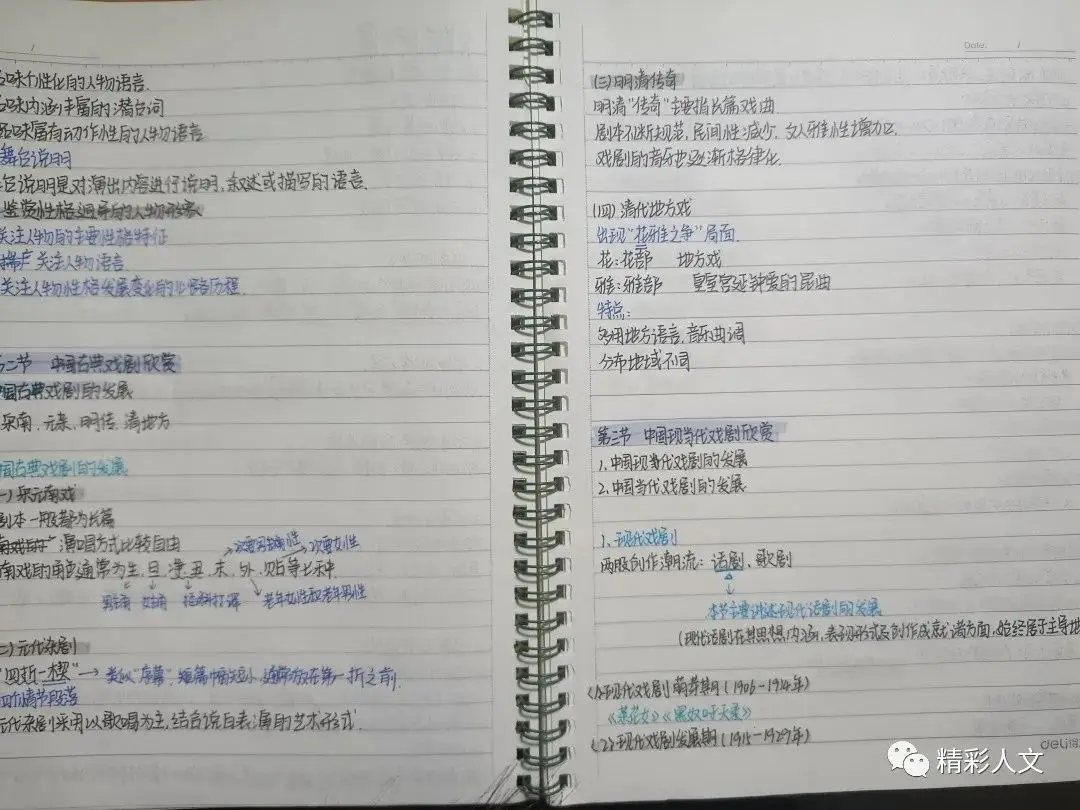 /
味个性化的人物语言.
味内涵丰富的潜台词
品味富有动作性的人物语言
舞台说明
台说明是对演出内容进行说明、叙述或描写的语言.
鉴赏性格迥异的人物形象
关注人物的主要性格特征
关注人物语言
关注人物性格发展变化的心路历程.
二节 中国古典戏剧欣赏
中国古典戏剧的发展
宋南、元杂、明传、清地方
国古典戏剧的发展
一)宋元南戏
剧本一般都为长篇
南戏的"演唱方式比较自由
次要男性 次要女性
南戏的角色通常为生、旦、净、丑、末、外、贴等七种.
男主角 女主角 插科打诨 老年女性和老年男性
二)元代杂剧
"四折一楔"→ 类似"序幕",短篇幅短小,通常放在第一折之前.
四个情节段落
元代杂剧采用以歌唱为主,结合说白表演的艺术形式.
Date. /
(三)明清传奇
明清"传奇"主要指长篇戏曲
剧本不断规范,民间性减少,文人雅性增加.
戏剧的音乐也逐渐格律化.
(四)清代地方戏
出现"花雅之争"局面.
花:花部 地方戏
雅:雅部 皇室宫廷钟爱的昆曲
特点:
多用地方语言,音乐曲调
分布地域不同
第三节 中国现当代戏剧欣赏
1.中国现当代戏剧的发展
2.中国当代戏剧的发展
1.现代戏剧
两股创作潮流:话剧、歌剧
本节主要讲述现代话剧的发展
(现代话剧在其思想内涵、表现形式及创作成就诸方面,始终居于主导地
(1)现代戏剧萌芽期(1906-1914年)
《茶花女》《黑奴吁天录》
(2)现代戏剧发展期(1915-1929年)
deli得
精彩人文